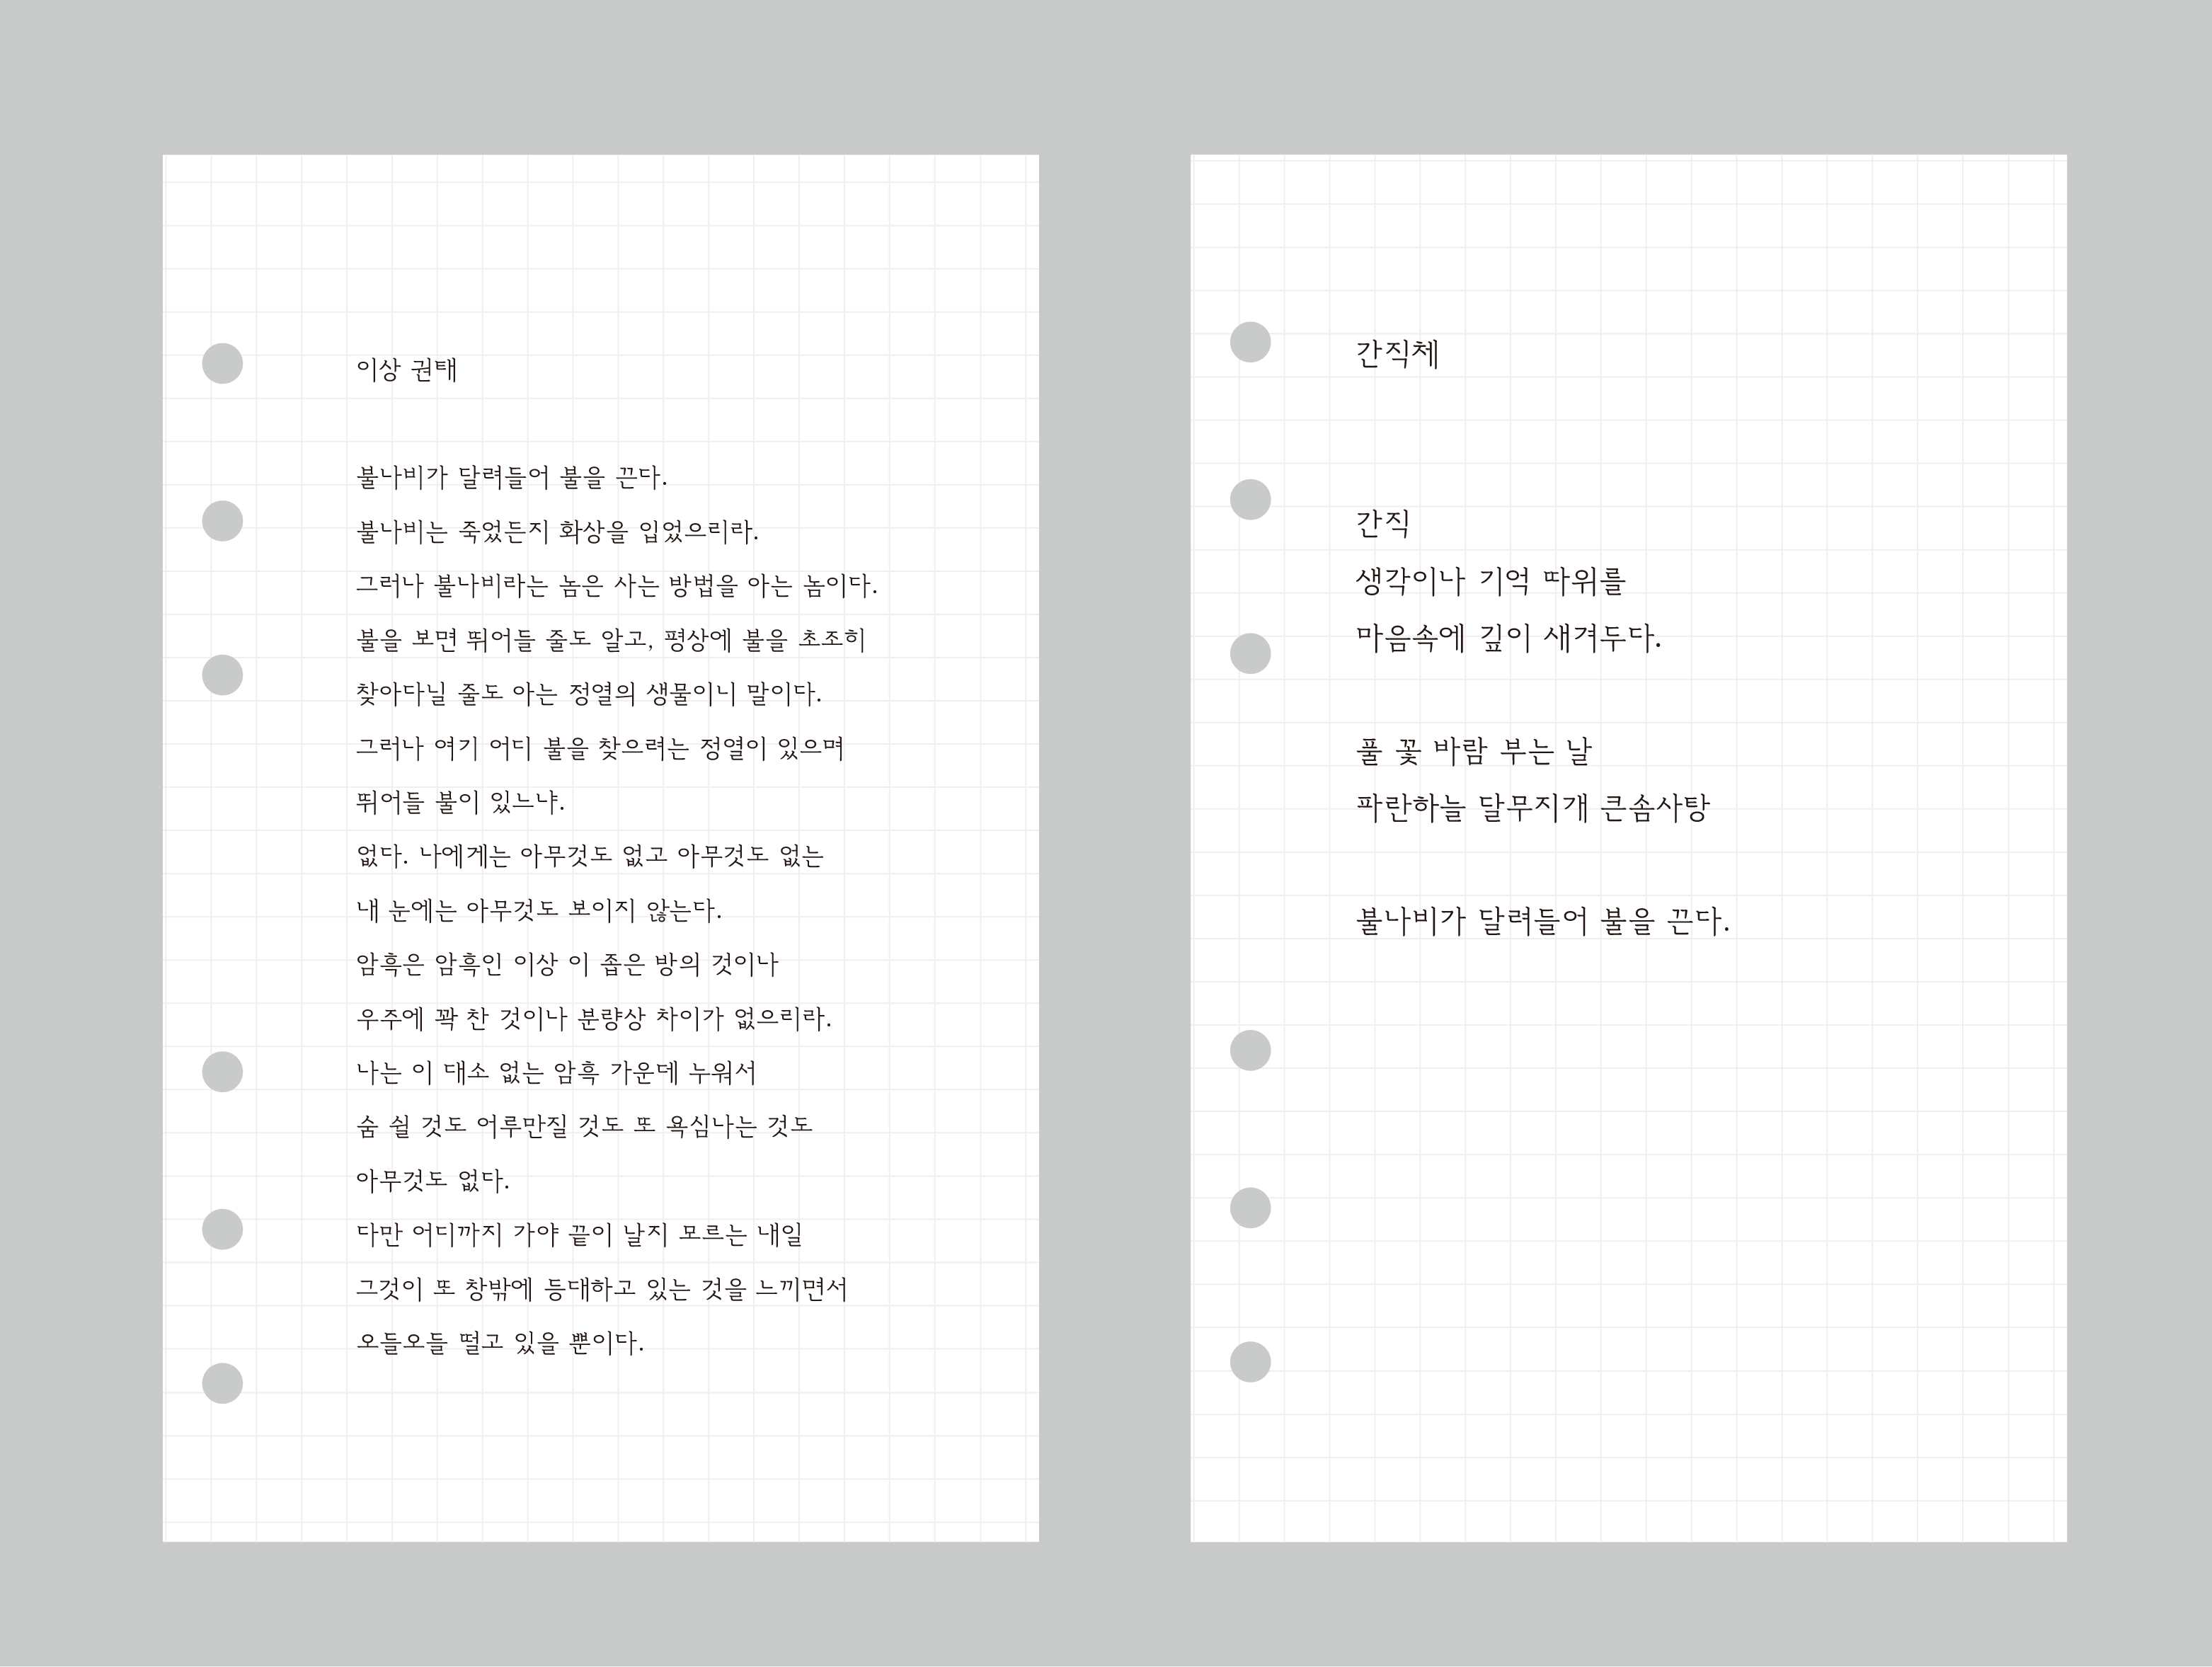 이상 권태
불나비가 달려들어 불을 끈다.
불나비는 죽었든지 화상을 입었으리라.
그러나 불나비라는 놈은 사는 방법을 아는 놈이다.
불을 보면 뛰어들 줄도 알고, 평상에 불을 초조히
찾아다닐 줄도 아는 정열의 생물이니 말이다.
그러나 여기 어디 불을 찾으려는 정열이 있으며
뛰어들 불이 있느냐.
없다. 나에게는 아무것도 없고 아무것도 없는
내 눈에는 아무것도 보이지 않는다.
암흑은 암흑인 이상 이 좁은 방의 것이나
우주에 꽉 찬 것이나 분량상 차이가 없으리라.
나는 이 대소 없는 암흑 가운데 누워서
숨 쉴 것도 어루만질 것도 또 욕심나는 것도
아무것도 없다.
다만 어디까지 가야 끝이 날지 모르는 내일
그것이 또 창밖에 등대하고 있는 것을 느끼면서
오들오들 떨고 있을 뿐이다.
간직체
간직
생각이나 기억 따위를
마음속에 깊이 새겨두다.
풀 꽃 바람 부는 날
파란하늘 달무지개 큰솜사탕
불나비가 달려들어 불을 끈다.